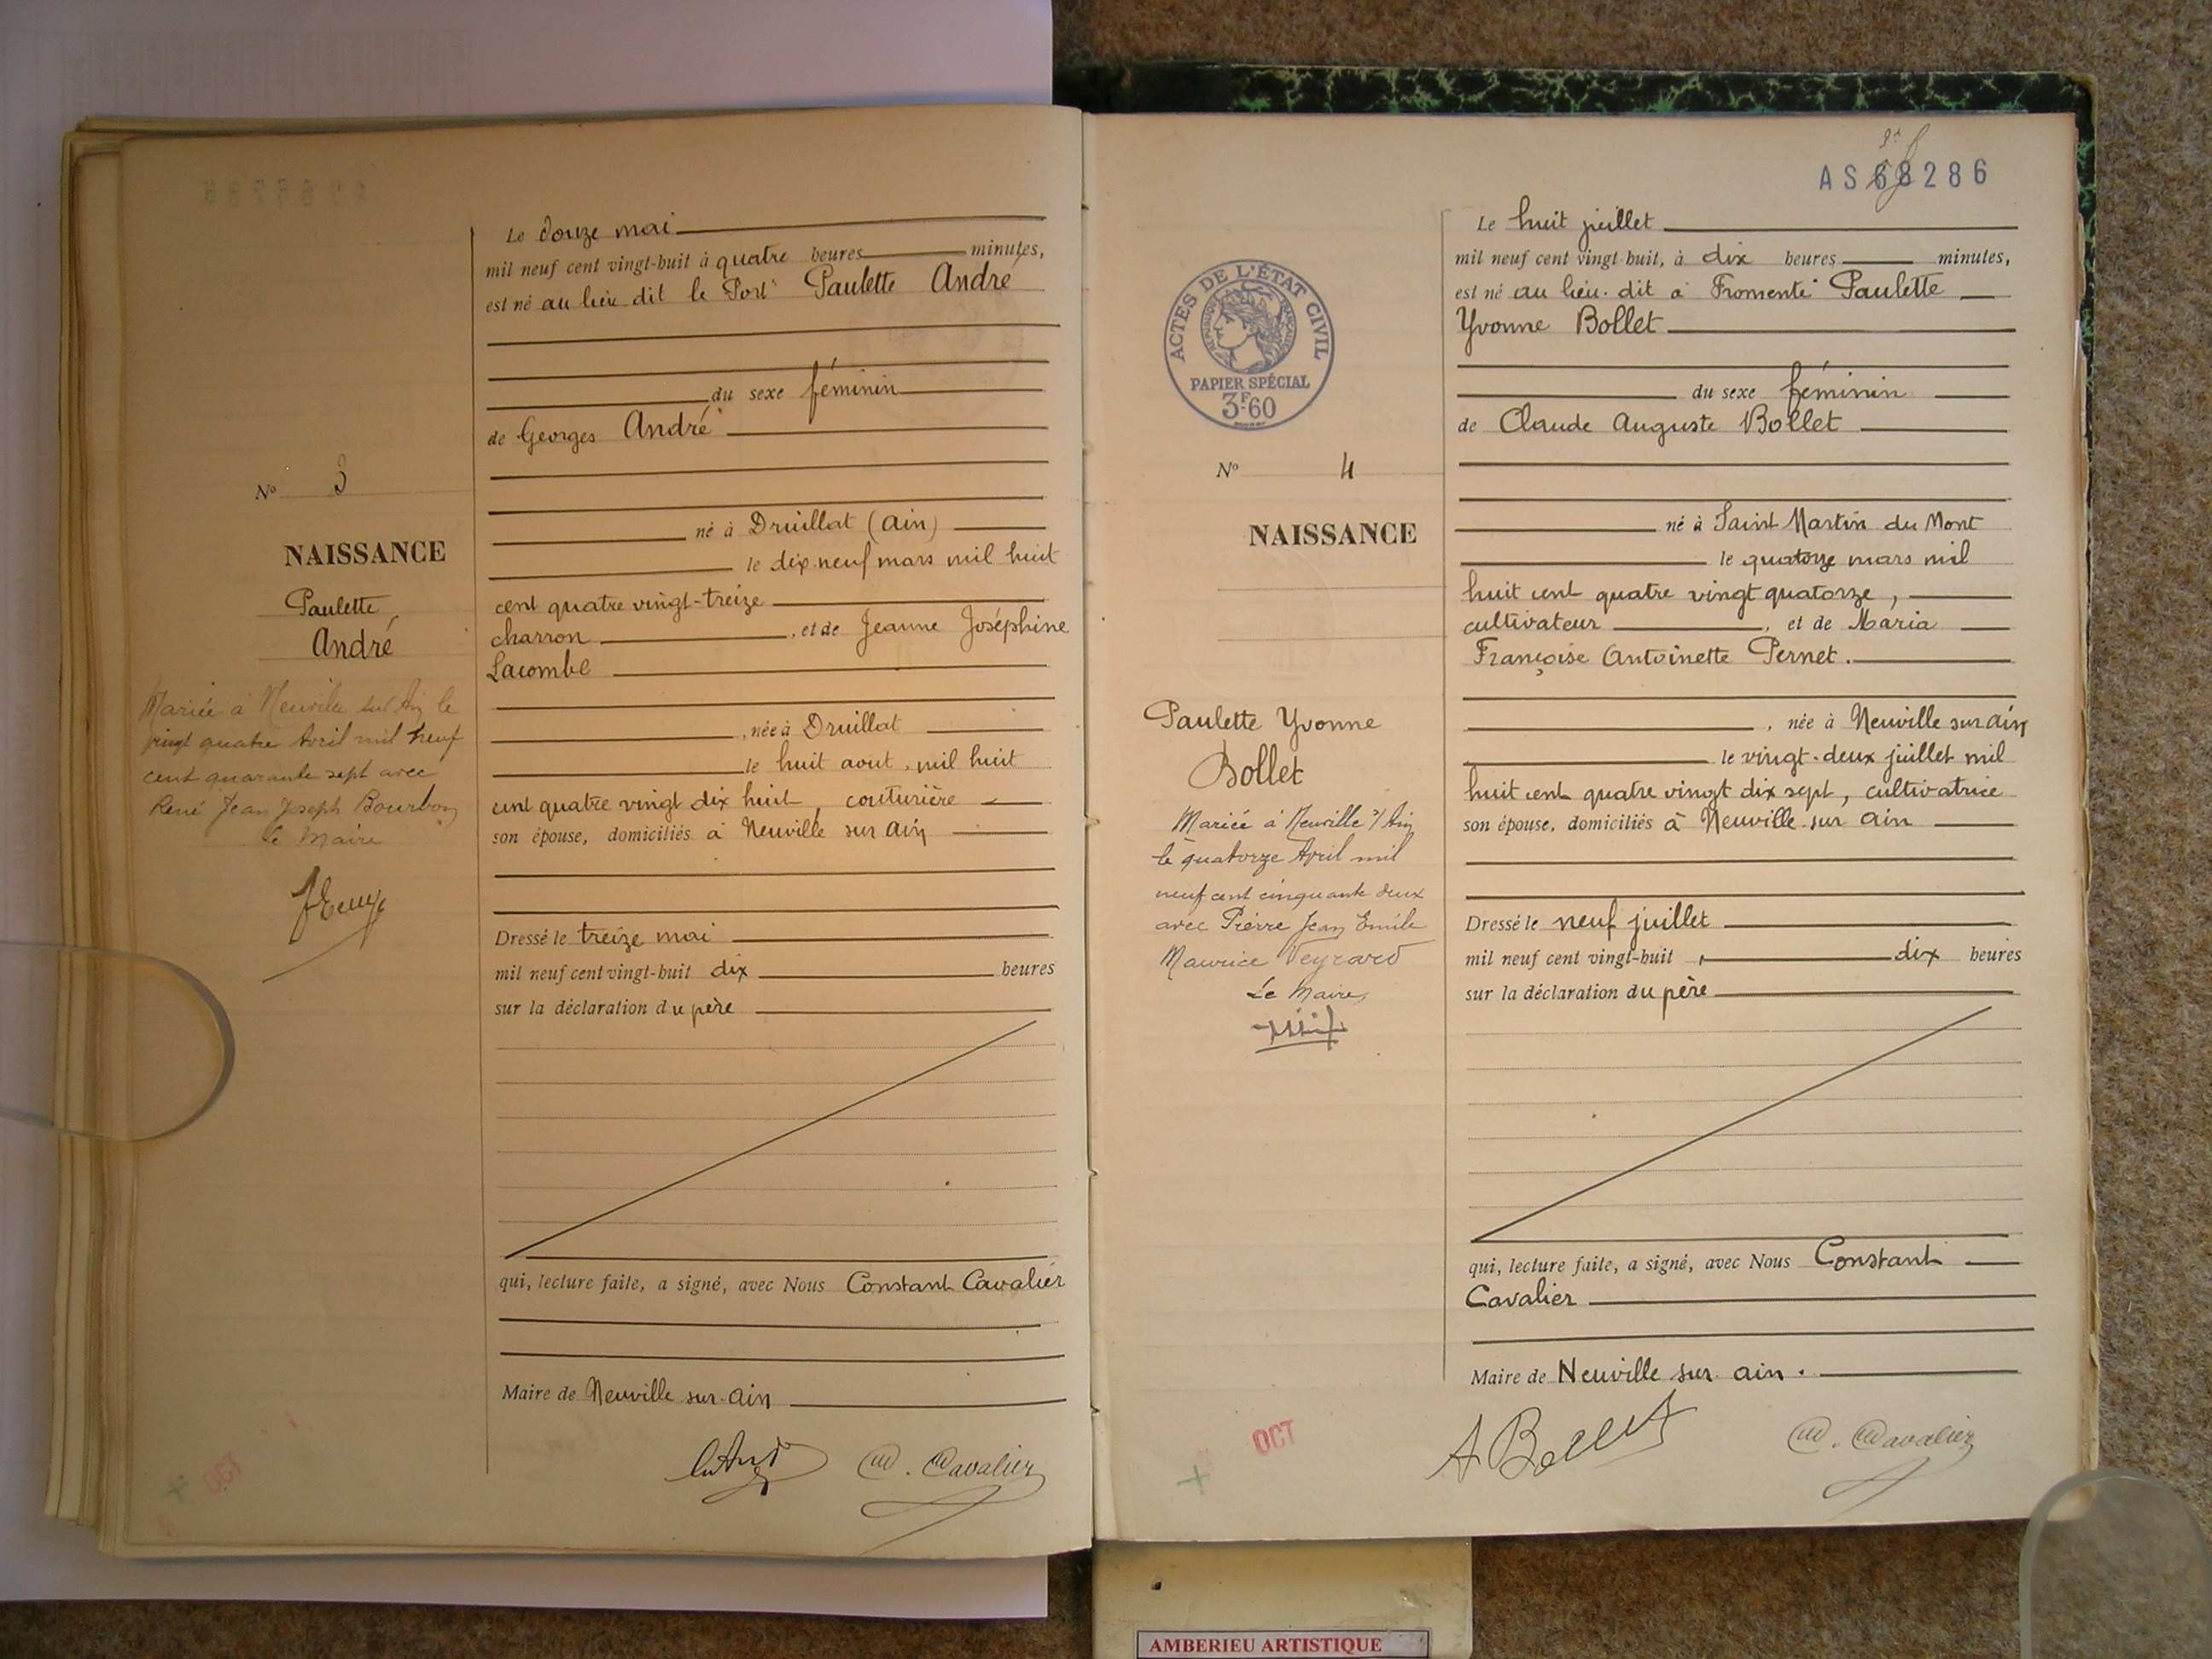 Le douze mai
mil neuf cent vingt-huit à quatre heures minutes,
est né au lieu dit le Port Paulette André
du sexe féminin
de Georges André
né à Druillat (Ain)
le dix-neuf mars mil huit
cent quatre vingt-treize
charron , et de Jeanne Joséphine
Lacombe
, née à Druillat
le huit aout, mil huit
cent quatre vingt dix huit, couturière
son épouse, domiciliés à Neuville sur Ain
Dressé le treize mai
mil neuf cent vingt-huit dix heures
sur la déclaration du père
qui, lecture faite, a signé, avec Nous Constant Cavalier
Maire de Neuville sur-Ain
C. Cavalier
No 3
NAISSANCE
Paulette
André
Mariée à Neuville sur Ain le
vingt quatre Avril mil neuf
cent quarante sept avec
René Jean Joseph Bourbon
Le Maire
OCT
AS 68286
Le huit juillet
mil neuf cent vingt-huit, à dix heures minutes,
est né au lieu-dit à Fromente Paulette
Yvonne Bollet
du sexe féminin
de Claude Auguste Bollet
né à Saint Martin du Mont
le quatorze mars mil
huit cent quatre vingt quatorze,
cultivateur , et de Maria
Françoise Antoinette Pernet.
, née à Neuville sur Ain
le vingt-deux juillet mil
huit cent quatre vingt dix sept, cultivatrice
son épouse, domiciliés à Neuville-sur Ain
Dressé le neuf juillet
mil neuf cent vingt-huit , dix heures
sur la déclaration du père
qui, lecture faite, a signé, avec Nous Constant
Cavalier
Maire de Neuville sur Ain.
A Bollet
C. Cavalier
ACTES DE L'ÉTAT CIVIL
RÉPUBLIQUE FRANÇAISE
PAPIER SPÉCIAL
3F60
No 4
NAISSANCE
Paulette Yvonne
Bollet
Mariée à Neuville s/ Ain
le quatorze Avril mil
neuf cent cinquante deux
avec Pierre Jean Emile
Maurice Veyrard
Le Maire,
OCT
AMBERIEU ARTISTIQUE